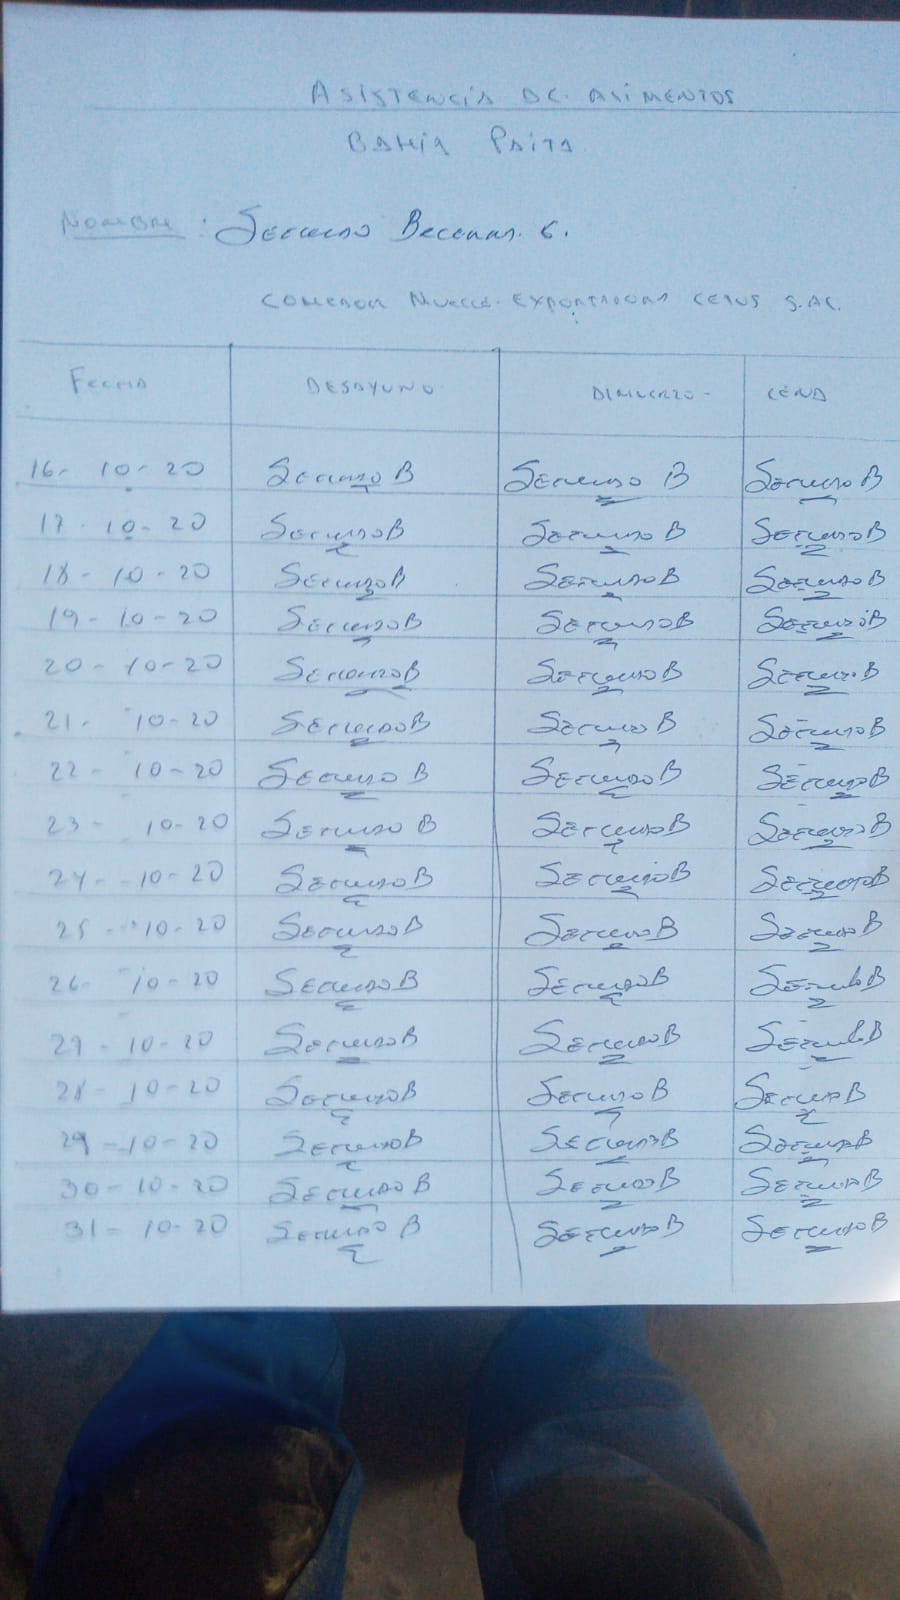 ASISTENCIA DE ALIMENTOS
BAHIA PAITA
NOMBRE : SEGUNDO
COMEDOR MUELLE EXPORTADORA CETUS S.AC.
FECHA DESAYUNO ALMUERZO - CENA
16 - 10 - 20 SEGUNDO B SEGUNDO B SEGUNDO B
17 - 10 - 20 SEGUNDO B SEGUNDO B SEGUNDO B
18 - 10 - 20 SEGUNDO B SEGUNDO B SEGUNDO B
19 - 10 - 20 SEGUNDO B SEGUNDO B SEGUNDO B
20 - 10 - 20 SEGUNDO B SEGUNDO B SEGUNDO B
21 - 10 - 20 SEGUNDO B SEGUNDO B SEGUNDO B
22 - 10 - 20 SEGUNDO B SEGUNDO B SEGUNDO B
23 - 10 - 20 SEGUNDO B SEGUNDO B SEGUNDO B
24 - 10 - 20 SEGUNDO B SEGUNDO B SEGUNDO B
25 - 10 - 20 SEGUNDO B SEGUNDO B SEGUNDO B
26 - 10 - 20 SEGUNDO B SEGUNDO B SEGUNDO B
27 - 10 - 20 SEGUNDO B SEGUNDO B SEGUNDO B
28 - 10 - 20 SEGUNDO B SEGUNDO B SEGUNDO B
29 - 10 - 20 SEGUNDO B SEGUNDO B SEGUNDO B
30 - 10 - 20 SEGUNDO B SEGUNDO B SEGUNDO B
31 - 10 - 20 SEGUNDO B SEGUNDO B SEGUNDO B